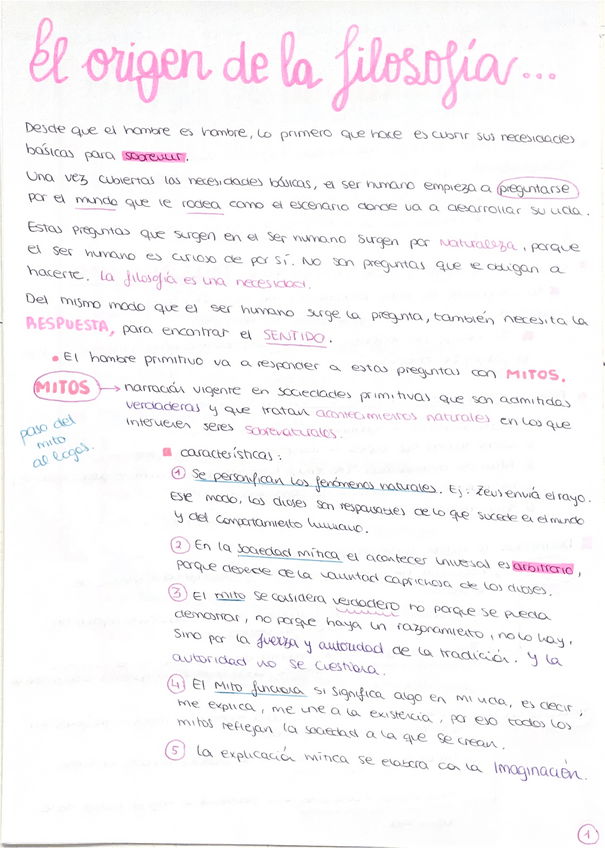 El origen de la filosofía...
Desde que el hombre es hombre, lo primero que hace es cubrir sus necesidades
básicas para sobrevivir.
Una vez cubiertas las necesidades básicas, el ser humano empieza a preguntarse
por el mundo que le rodea como el escenario donde va a desarrollar su vida.
Estas preguntas que surgen en el ser humano surgen por Naturaleza, porque
el ser humano es curioso de por sí. No son preguntas que le obligan a
hacerte. la filosofía es una necesidad.
Del mismo modo que el ser humano surge la pregunta, también necesita la
RESPUESTA, para encontrar el SENTIDO.
• El hombre primitivo va a responder a estas preguntas con MITOS.
MITOS → narración vigente en sociedades primitivas que son admitidas
verdaderas y que tratan acontecimientos naturales en los que
intervienen seres sobrenaturales.
paso del
mito
al logos.
características:
1 Se personifican los fenómenos naturales. Ej: Zeus envía el rayo.
Este modo, los dioses son responsables de lo que sucede en el mundo
y del comportamiento humano.
2 En la sociedad mítica el acontecer universal es arbitrario,
porque depende de la voluntad caprichosa de los dioses.
3 El mito se considera verdadero no porque se pueda
demostrar, no porque haya un razonamiento, no lo hay,
sino por la fuerza y autoridad de la tradición. y la
autoridad no se cuestiona.
4 El Mito funciona si significa algo en mi vida, es decir,
me explica, me une a la existencia, por eso todos los
mitos reflejan la sociedad a la que se crean.
5 La explicación mítica se elabora con la Imaginación.
1